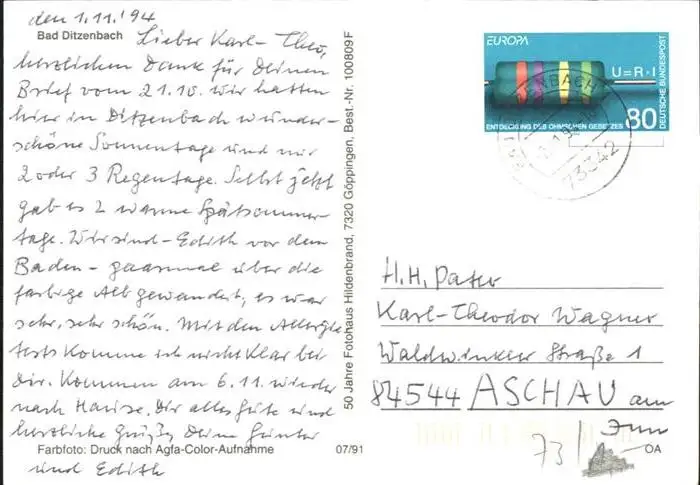 den 1.11.'94
Bad Ditzenbach
Lieber Karl-Theo,
herzlichen Dank für Deinen
Brief vom 21.10. wir hatten
hier in Ditzenbach wunder-
schöne Sonnentage und nur
2 oder 3 Regentage. Selbst jetzt
gab es 2 warme Spätsommer-
tage. Wir sind - Edith vor dem
Baden - über die
farbige Alb gewandert, es war
sehr, sehr schön. Mit den Allergie
tests komme ich nicht klar bei
Dir. Kommen am 6.11. wieder
nach Hause. Dir alles Gute und
herzliche Grüße Deine Günter
und Edith
Farbfoto: Druck nach Agfa-Color-Aufnahme
07/91
50 Jahre Fotohaus Hildenbrand, 7320 Göppingen, Best.-Nr. 100809F
EUROPA
U=R·I
DEUTSCHE BUNDESPOST
ENTDECKUNG DES OHMSCHEN GESETZES
80
73342
H.H. Pater
Karl-Theodor Wagner
Waldwinkler Straße 1
84544 ASCHAU am
Inn
73/
OA